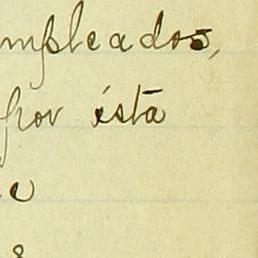 mpleados,
por ésta